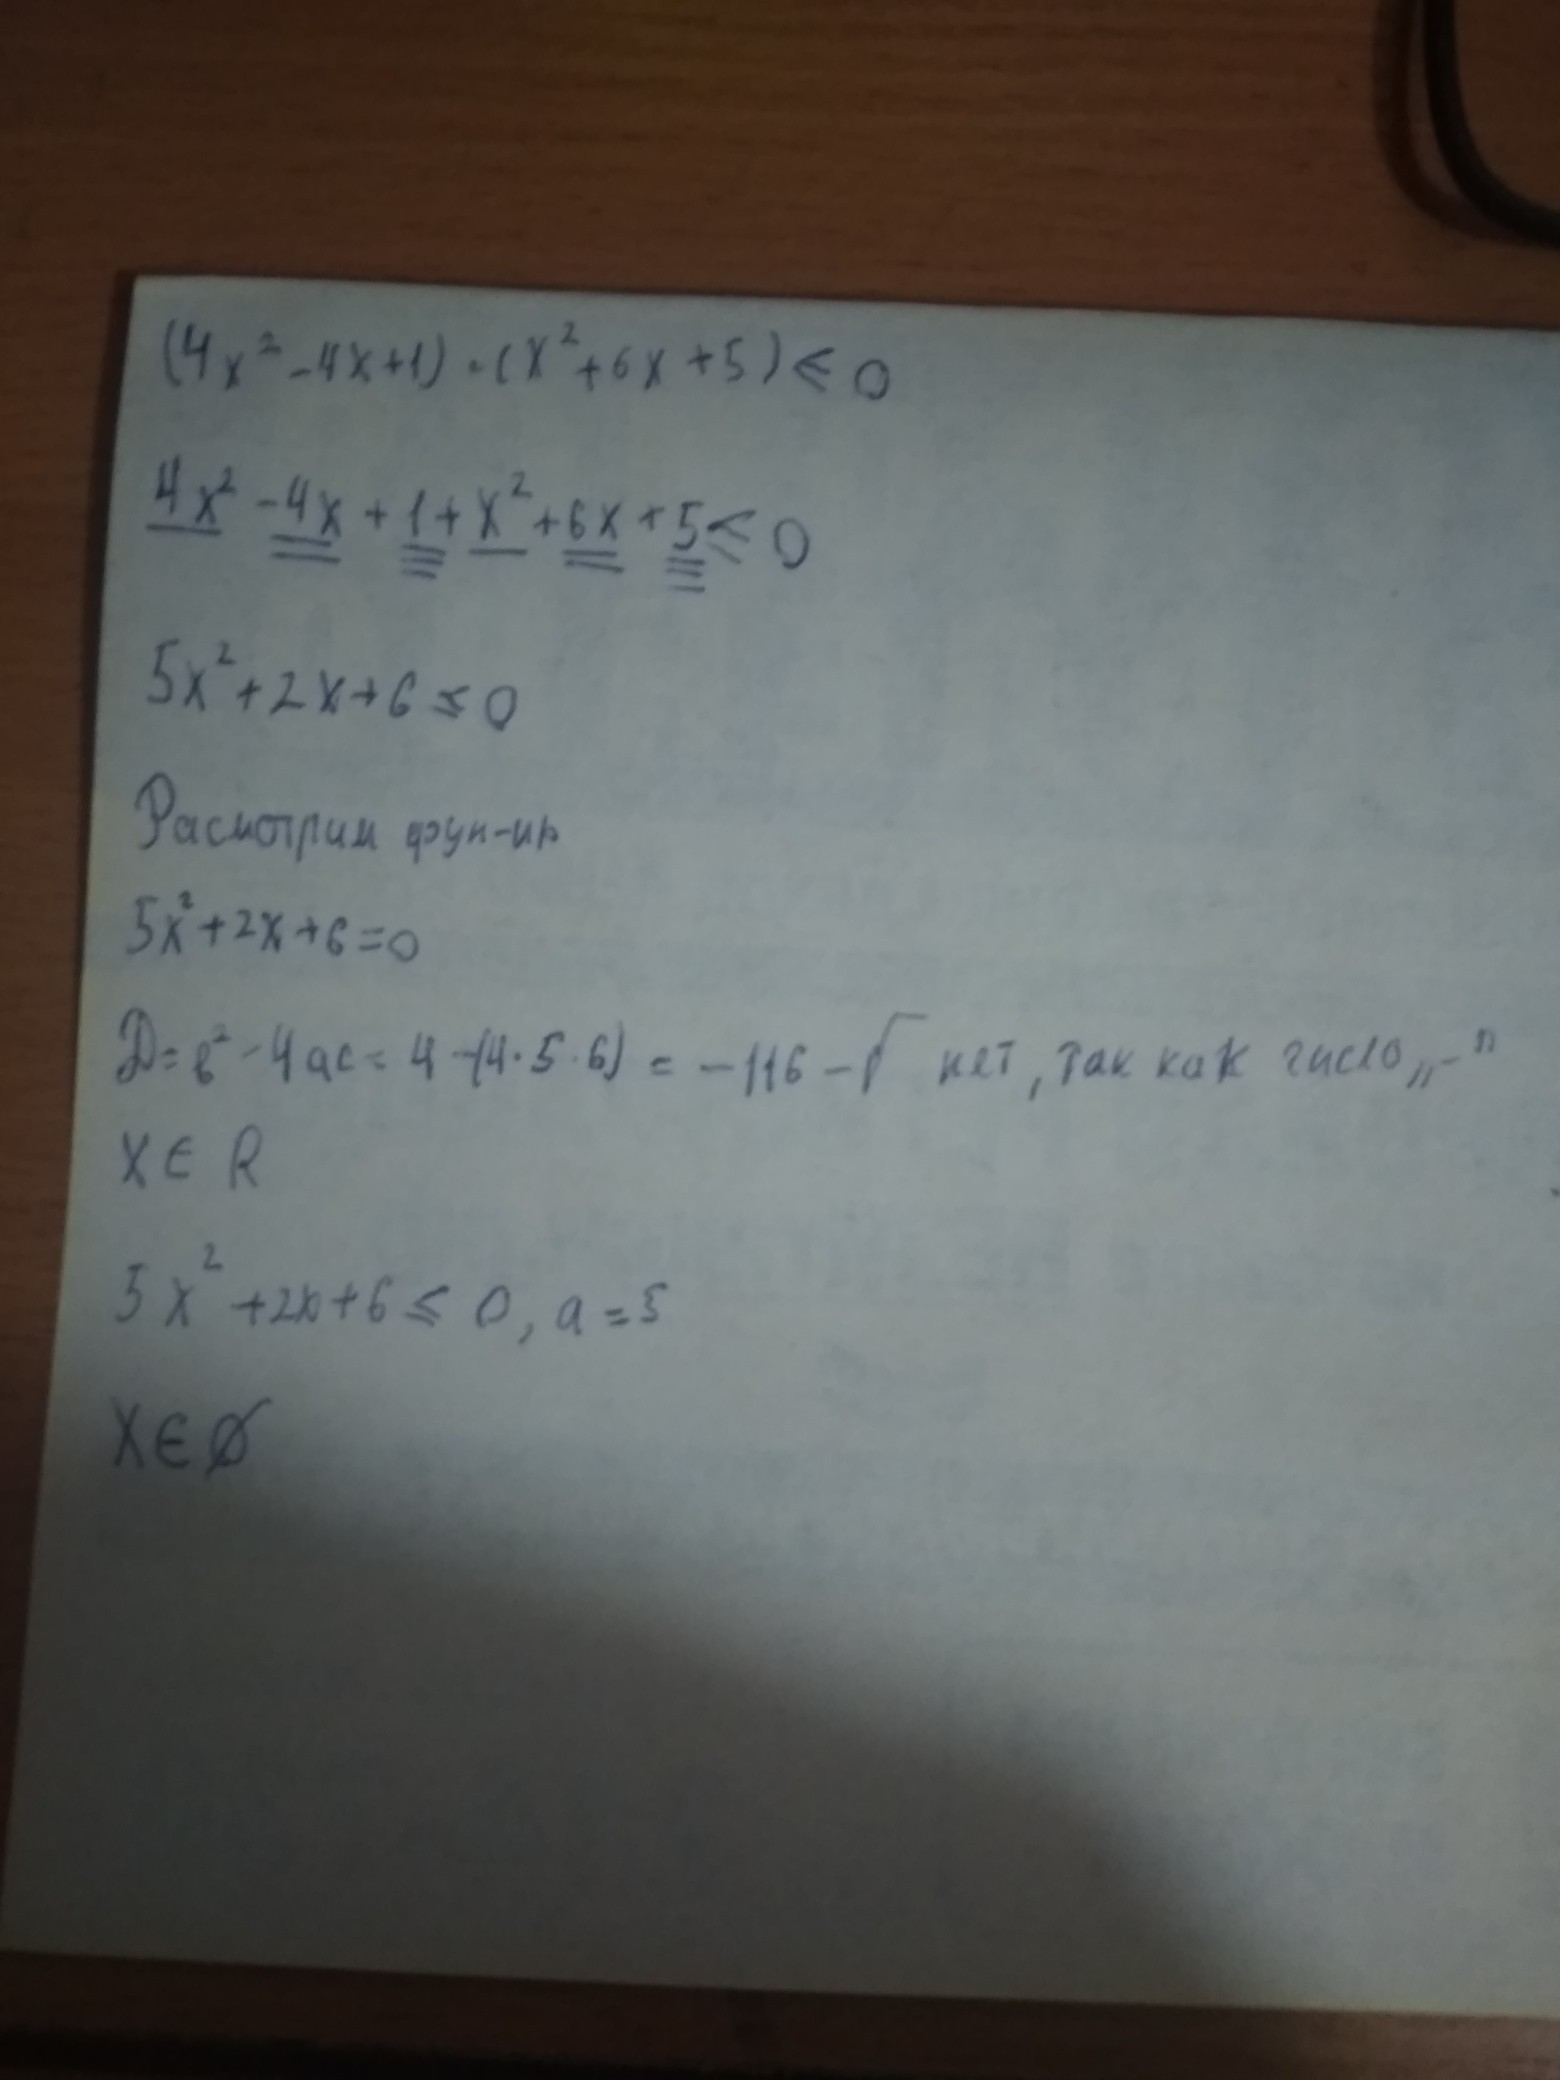 (4x² - 4x + 1) · (x² + 6x + 5) ≤ 0
4x² - 4x + 1 + x² + 6x + 5 ≤ 0
5x² + 2x + 6 ≤ 0
Расмотрим фун-ию
5x² + 2x + 6 = 0
D = в² - 4ac = 4 - (4 · 5 · 6) = -116 - √ нет, так как число „-"
X ∈ R
5x² + 2x + 6 ≤ 0, a = 5
X ∈ Ø